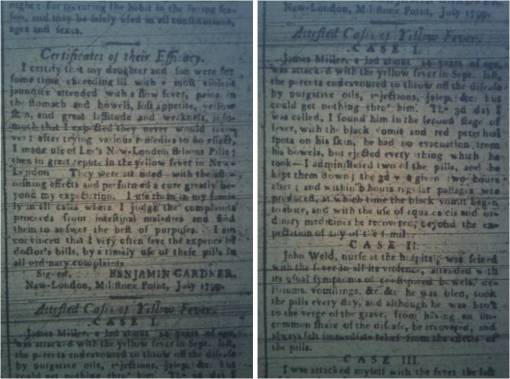 and may be safely used in all constitutions,
ages and sexes.
Certificates of their Efficacy.
I certify that my daughter and son were for
some time exceeding ill with a most violent
jaundice attended with a slow fever, pains in
the stomach and bowels, lost appetite, yellow
skin, and great lassitude and weakness, inso-
much that I expected they never would
after trying various remedies to no effect,
I made use of Lee's New-London Bilious Pills
then in great repute in the yellow fever in New-
London They were attended with the
nishing effects and performed a cure greatly be-
yond my expectation. I use them in my fami-
ly in all cases where I judge the complaint
proceeds from intestinal maladies and find
them to answer the best of purposes. I am
convinced that I very often save the expence of
doctor's bills, by a timely use of these pills in
all ordinary complaints
Signed, BENJAMIN GARDNER.
New-London, Millstone Point, July 1799.
Attested Cases of Yellow Fever.
CASE I.
James Miller, a lad about years of age,
was attacked with the yellow fever in Sept. last,
the parents endeavoured to throw off the disease
by purgative oils, injections, jalap, &c. but
could get nothing thro' him. The 3d day I
New-London, Millstone Point, July 1799.
Attested Cases of Yellow Fever.
CASE I.
James Miller, a lad about years of age,
was attacked with the yellow fever in Sept. last,
the parents endeavoured to throw off the disease
by purgative oils, injections, jalap, &c. but
could get nothing thro' him. The 3d day I
was called, I found him in the second stage of
fever, with the black vomit and red petechial
spots on his skin, he had no evacuation from
his bowels, but ejected every thing which he
took—I administered two of the pills, and he
kept them down; the given two hours
after; and within hours regular passage was
produced, at which time the black vomit began
to abate, and with the use of aqua calcis and or-
dinary medicines he recovered, beyond the ex-
pectation of any of the family.
CASE II.
John Weld, nurse at the hospital, was seized
with the fever in all its virulence, attended with
its usual symptoms of costiveness bowels,
vomitings, &c &c he was bled, took
the pills every day, and although he was bro't
to the verge of the grave, from having an un-
common share of the disease, he recovered, and
always felt immediate relief from the effects of
the pills.
CASE III.
I was attacked myself with the fever the last